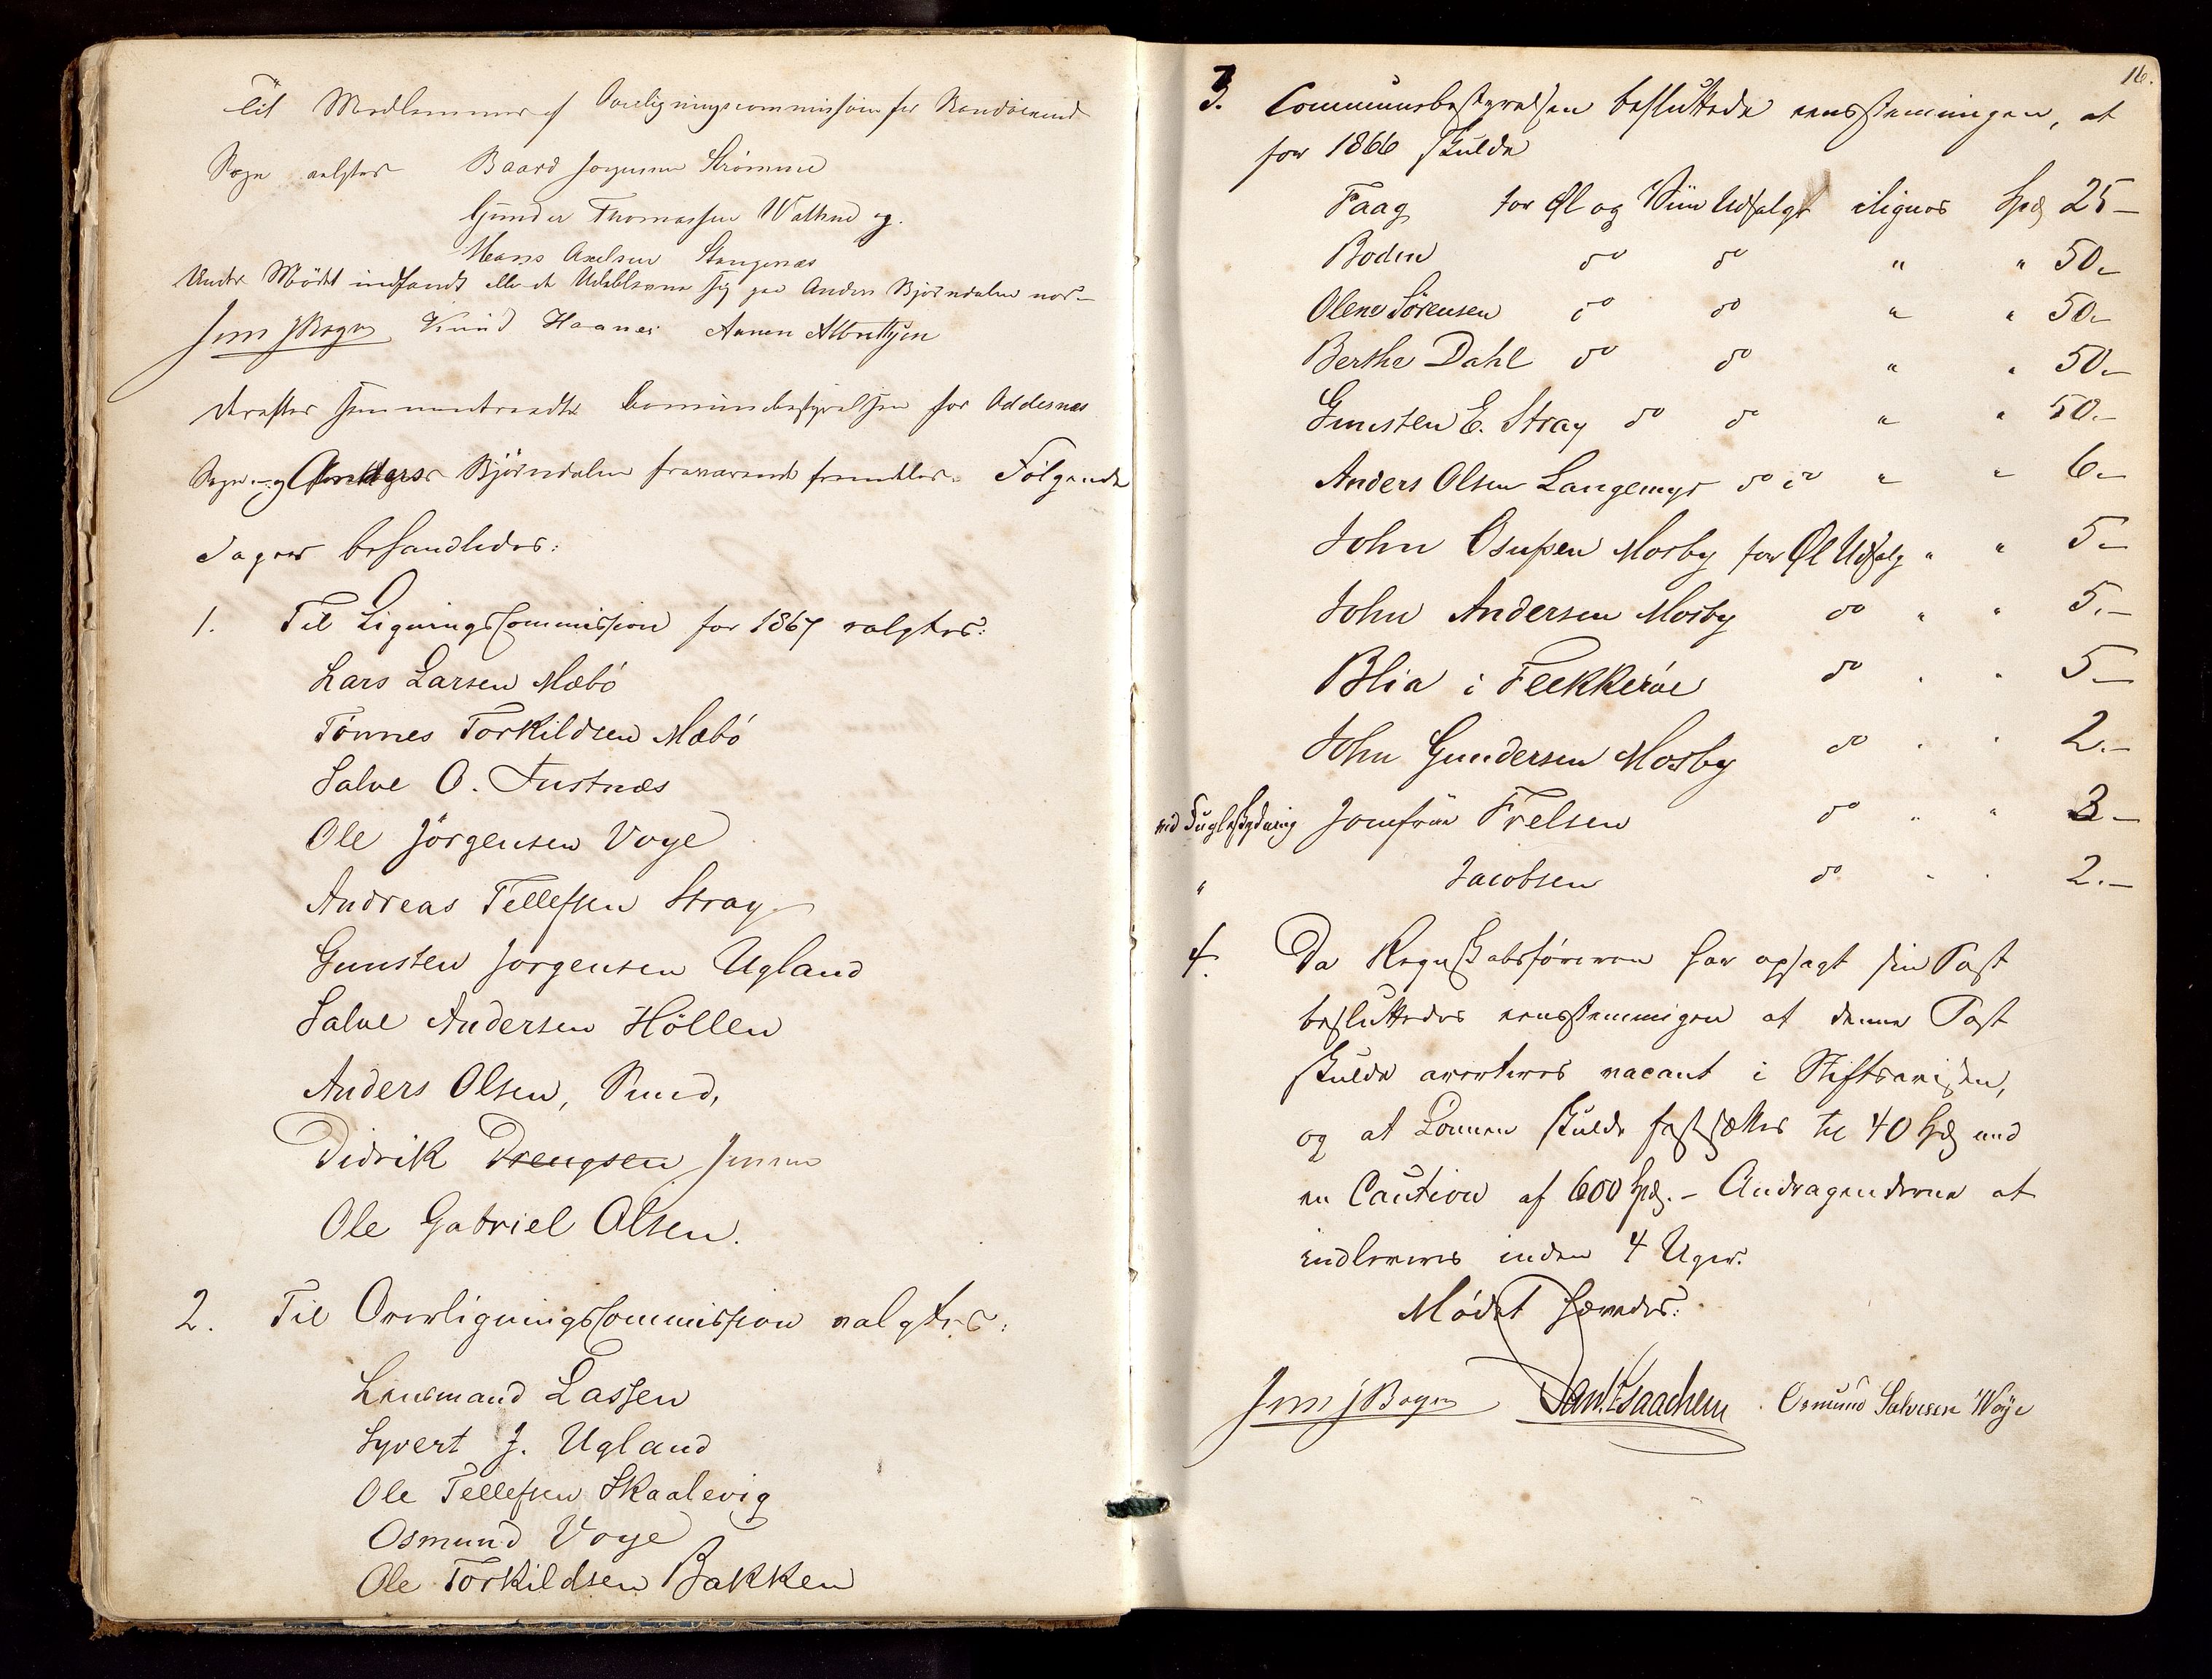 Til Medlemmer af Overligningscommission for Randøesund
Sogn valgtes Baard Jørgensen Strømme
Gunder Thomassen Walhud og.
Hans Axelsen Stangenæs
Under Mødet indfandt alle de Udeblevne sig paa Anders Bjørndalen nær.
Jens JBogen Knud Haanes Aanen Albrettsen
Derefter sammentraadte Communebestyrelsen for Oddernæs
Sogn og Anders Bjørndalen fraværende fremdeles. Følgende
Sager behandledes:
1. Til LigningsCommission for 1867 valgtes:
Lars Larsen Mæbó
Tónnes Torkildsen Mæbó
Salve O. Justnæs
Ole Jörgensen Voye
Andreas Tellefsen Stray
Gunsten Jørgensen Ugland
Salve Andersen Höllen
Anders Olsen, Sund,
Didrik Drengsen Jensen
Ole Gabriel Olsen.
2. Til OverligningsCommission valgtes:
Lensmand Lassen
Syvert J. Ugland
Ole Tellefsen Skaalevig
Osmund Voye
Ole Torkildsen Bakken
16.
3. Communebestyrelsen besluttede eensstemmingen, at
for 1866 skulde
Faag for Øl og Viin Udsalgt ilignes Spd 25 —
Boden do do " " 50.—
Olene Sörensen do do " " 50.—
Berthe Dahl do do " " 50.—
Gunsten E. Stray do do " " 50.—
Anders Olsen Langemyr do do " " 6.—
John Osufsen Mosby for Øl Udsalg " " 5.—
John Andersen Mosby do " " 5.—
Blia i Flekkeróe do " " 5.—
John Gundersen Mosby do " " 2.—
ved Fugleskydning Jomfrue Frelsen do " " 3.—
" Jacobsen do " " 2.—
4. Da Regnskabsføreren har opsagt sin Post
besluttedes eensstemmigen at denne Post
skulde averteres vacant i Stiftsavisen,
og at Lönnen skulde fastsættes til 40 Spd mod
en Caution af 600 Spd. – Andragenderne at
indleveres inden 4 Uger.
Mødet hævedes:
Jens JBogen Dan. Isaachsen Osmund Salvesen Wöye